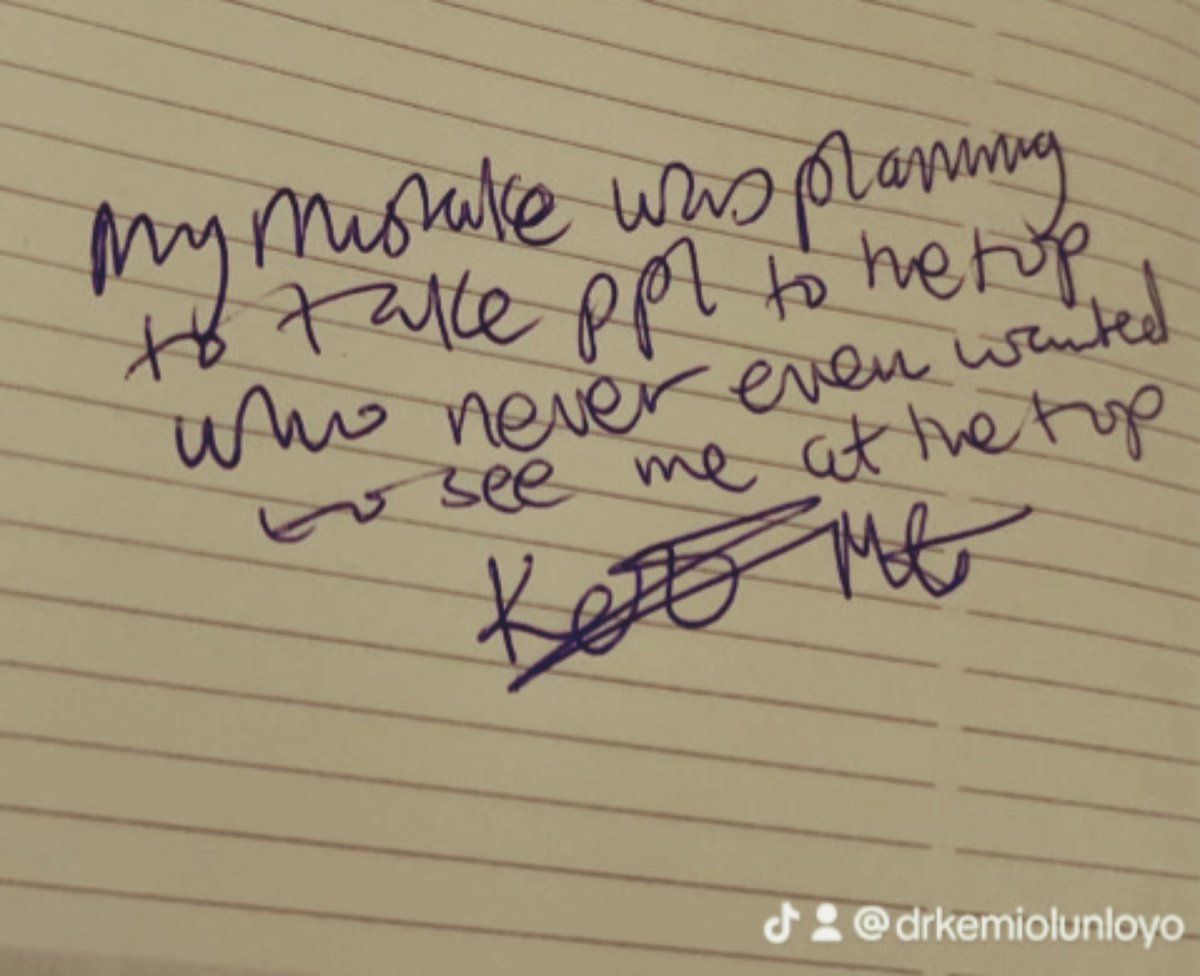 My mistake was planning
to take ppl to the top
who never even wanted
to see me at the top
@drkemiolunloyo